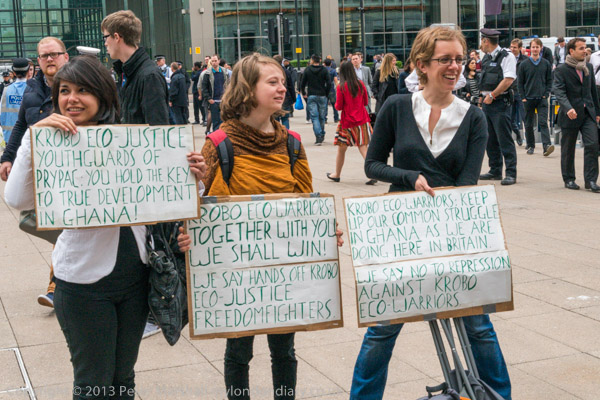 KROBO ECO JUSTICE
YOUTHGUARDS OF
PRYPAC: YOU HOLD THE KEY
TO TRUE DEVELOPMENT
IN GHANA!
KROBO ECO WARRIORS:
TOGETHER WITH YOU
WE SHALL WIN!
WE SAY HANDS OFF KROBO
ECO-JUSTICE
FREEDOMFIGHTERS
KROBO ECO-WARRIORS: KEEP
UP OUR COMMON STRUGGLE
IN GHANA AS WE ARE
DOING HERE IN BRITAIN.
WE SAY NO TO REPRESSION
AGAINST KROBO
ECO-WARRIORS.
© 2013 Peter